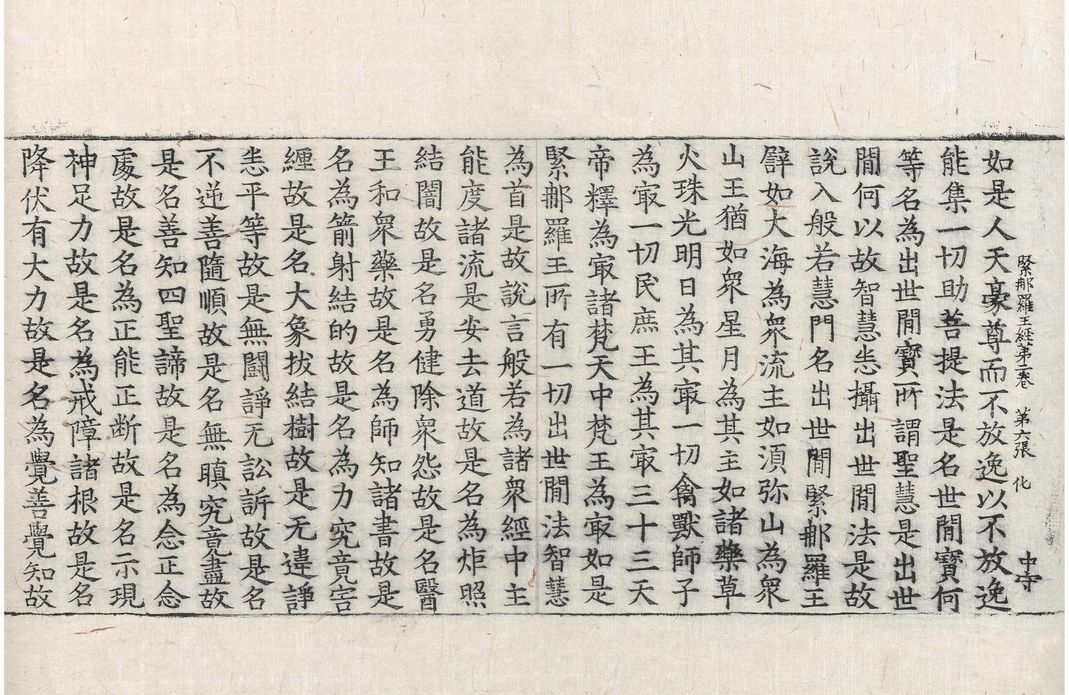 緊那羅王経第二卷 第六張 化 中守
如是人天豪尊而不放逸以不放逸
能集一切助菩提法是名世閒寶何
等名為出世閒寶所謂聖慧是出世
閒何以故智慧悉攝出世閒法是故
說入般若慧門名出世閒緊那羅王
譬如大海為衆流主如湏弥山為衆
山王猶如衆星月為其主如諸藥草
火珠光明日為其㝡一切禽獸師子
為㝡一切民庶王為其㝡三十三天
帝釋為㝡諸梵天中梵王為㝡如是
緊那羅王所有一切出世閒法智慧
為首是故說言般若為諸衆經中主
能度諸流是安去道故是名為炬照
結闇故是名勇健除衆怨故是名醫
王和衆藥故是名為師知諸書故是
名為箭射結的故是名為力究竟害
纏故是名大象拔結樹故是无違諍
恚平等故是無闘諍无訟訴故是名
不逆善隨順故是名無瞋究竟盡故
是名善知四聖諦故是名為念正念
處故是名為正能正断故是名示現
神足力故是名為戒障諸根故是名
降伏有大力故是名為覺善覺知故